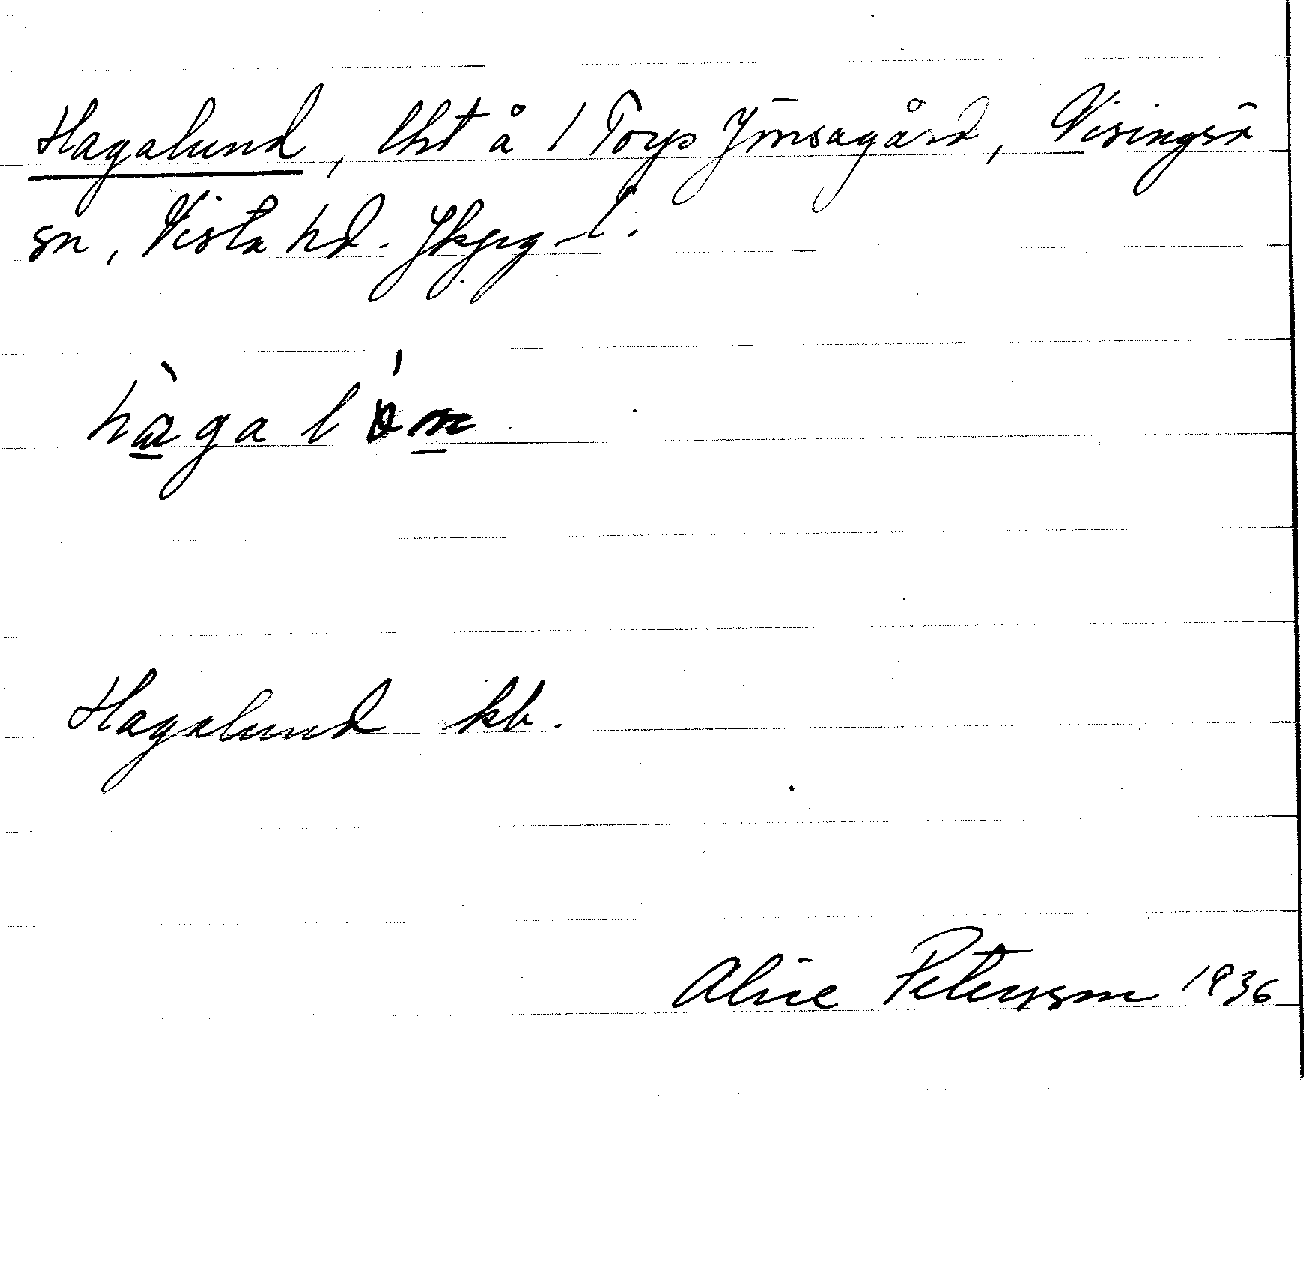 Hagalund, lht å 1 Torps Jönsagård, Visingsö
sn, Vista hd. Jkpg l.
hàga l
Hagalund kb.
Alice Petersson 1936